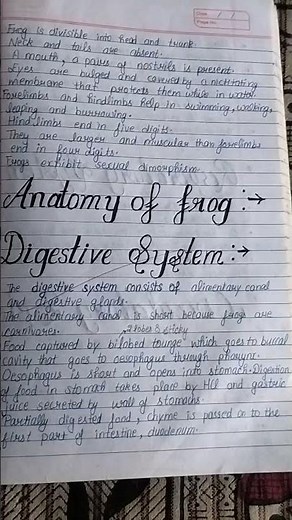 Date
Page No.
Frog is divisible into head and trunk.
Neck and tails are absent.
A mouth, a pairs of nostrils is present.
Eyes are bulged and covered by a nictitating
membrane that protects them while in water
Forelimbs and hindlimbs help in swimming, walking,
leaping and burrowing.
Hind limbs end in five digits.
They are larger and muscular than forelimbs
end in four digits.
Frogs exhibit sexual dimorphism.
Anatomy of frog :→
Digestive System :→
The digestive system consists of alimentary canal
and digestive glands.
The alimentary canal is short because frogs are
carnivores.
→ 2 lobes & sticky
Food captured by bilobed tounge which goes to buccal
cavity that goes to oesophagus through pharynx.
Oesophagus is short and opens into stomach. Digestion
of food in stomach takes place by HCl and gastric
juice secreted by wall of stomachs.
Partially digested food, chyme is passed on to the
first part of intestine, duodenum.